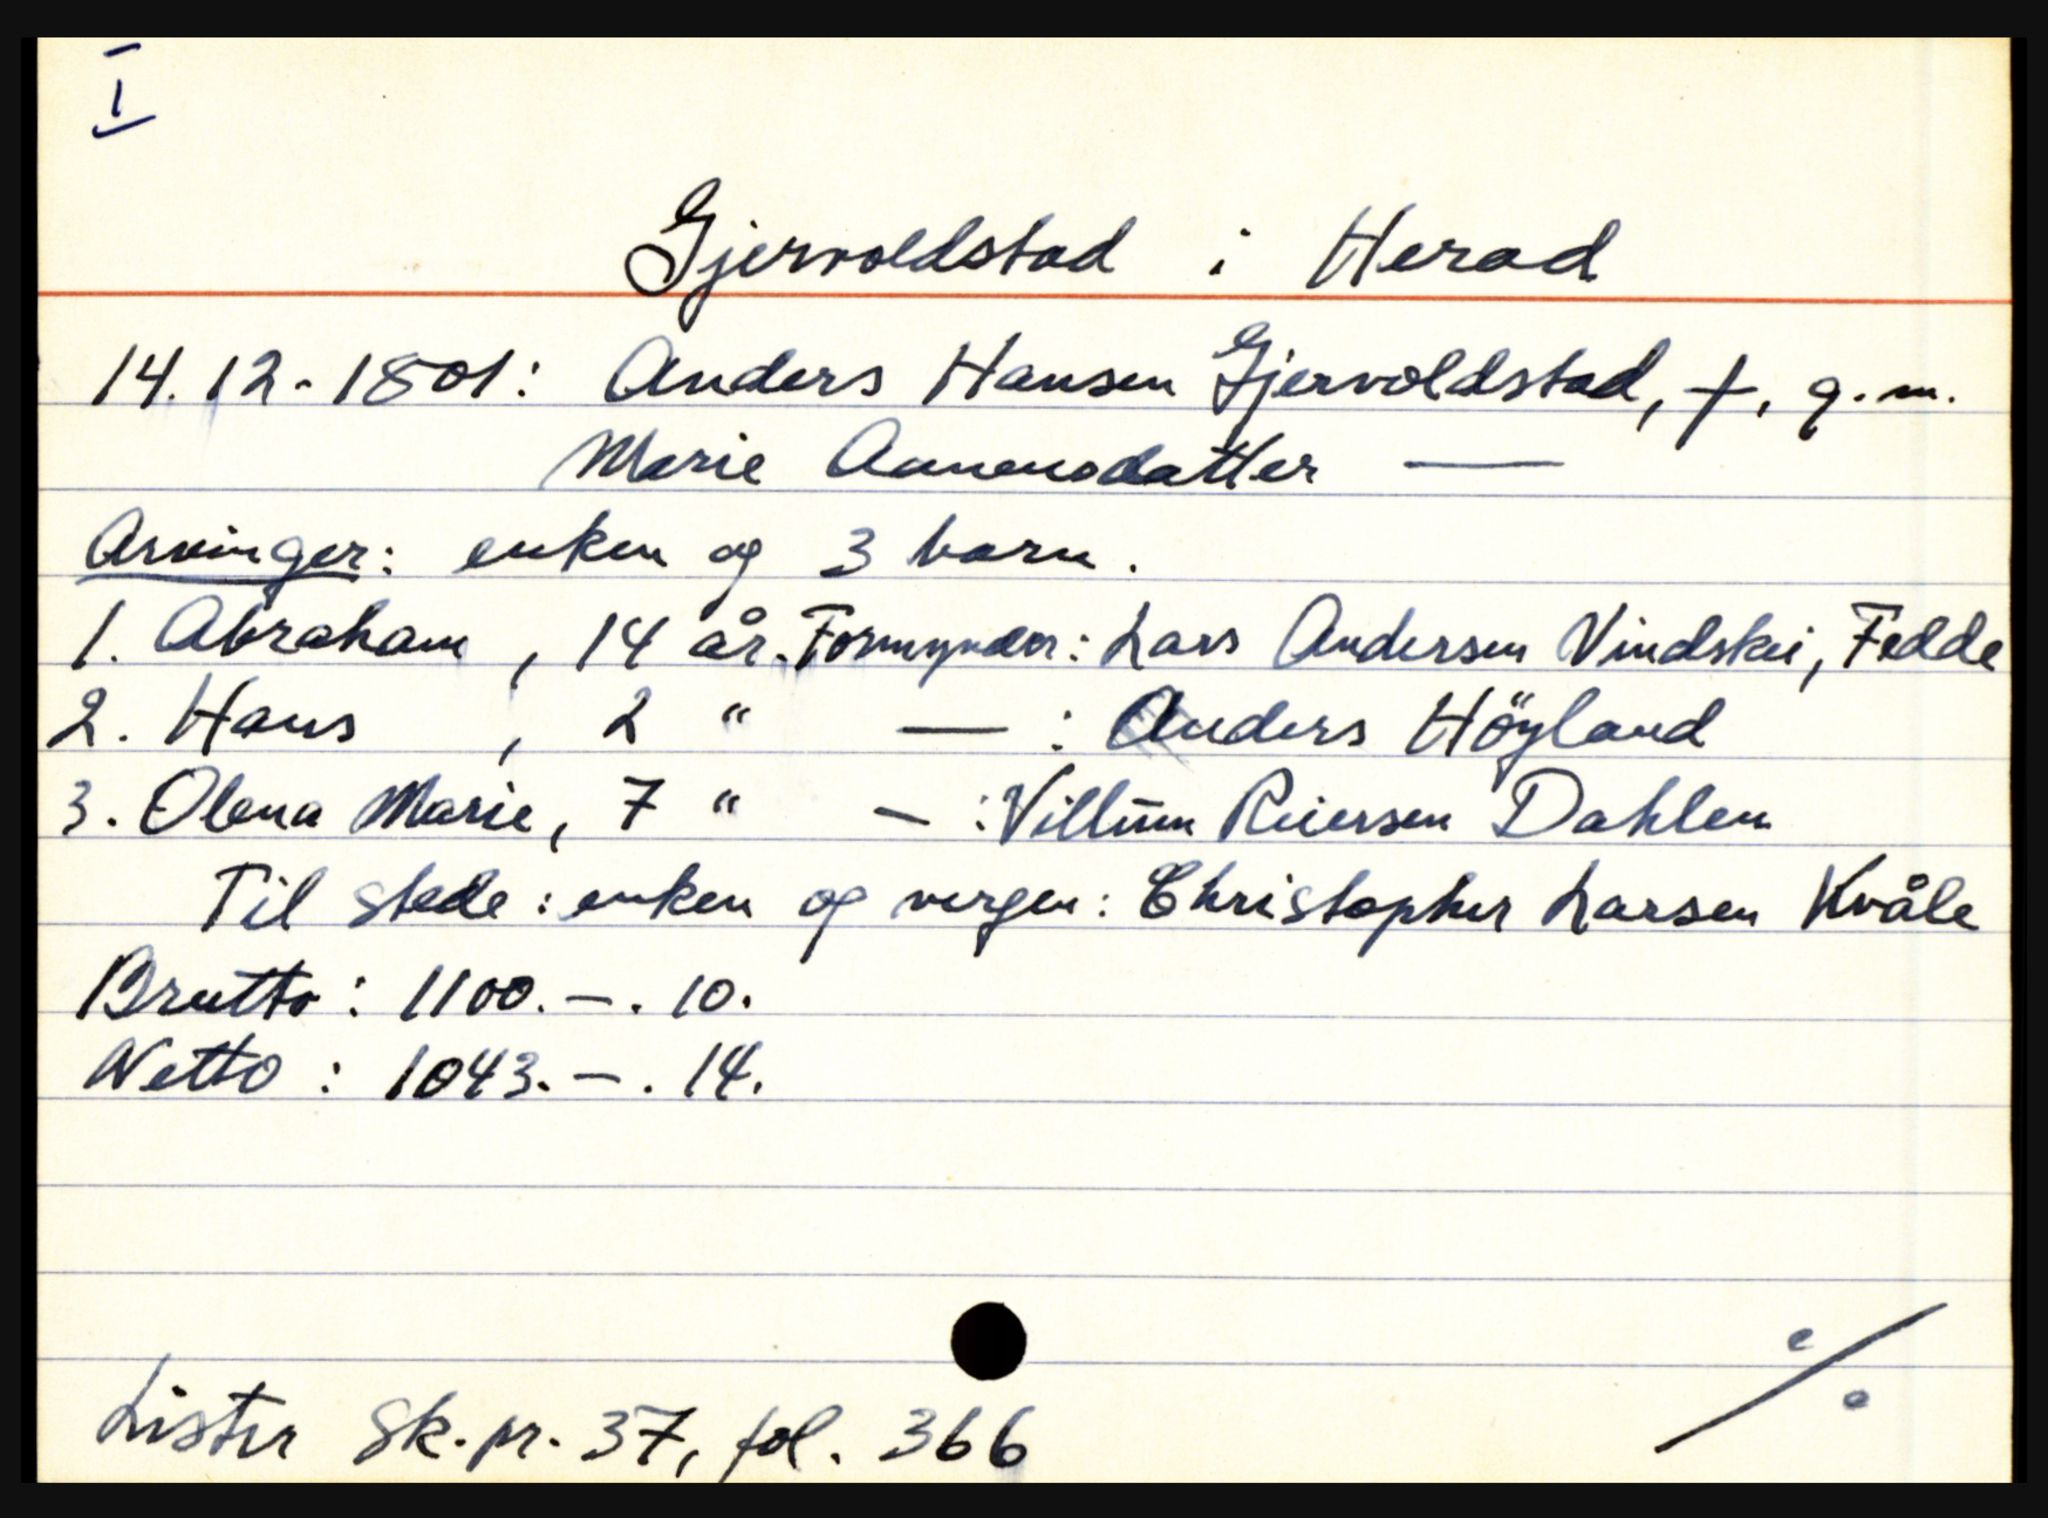 I
Gjervoldstad i Herad
14.12.1801: Anders Hansen Gjervoldstad, †, g.m.
Marie Aanensdatter —
Arvinger: enken og 3 barn.
1. Abraham, 14 år. Formynder: Lars Andersen Vindskei, Fedde
2. Hans, 2 " — : Anders Höyland
3. Olena Marie, 7 " — : Villum Reiersen Dahlen
Til stede: enken og vergen: Christopher Larsen Kvåle
Brutto: 1100.—.10.
Netto: 1043.—.14.
Lister sk.pr. 37, fol. 366